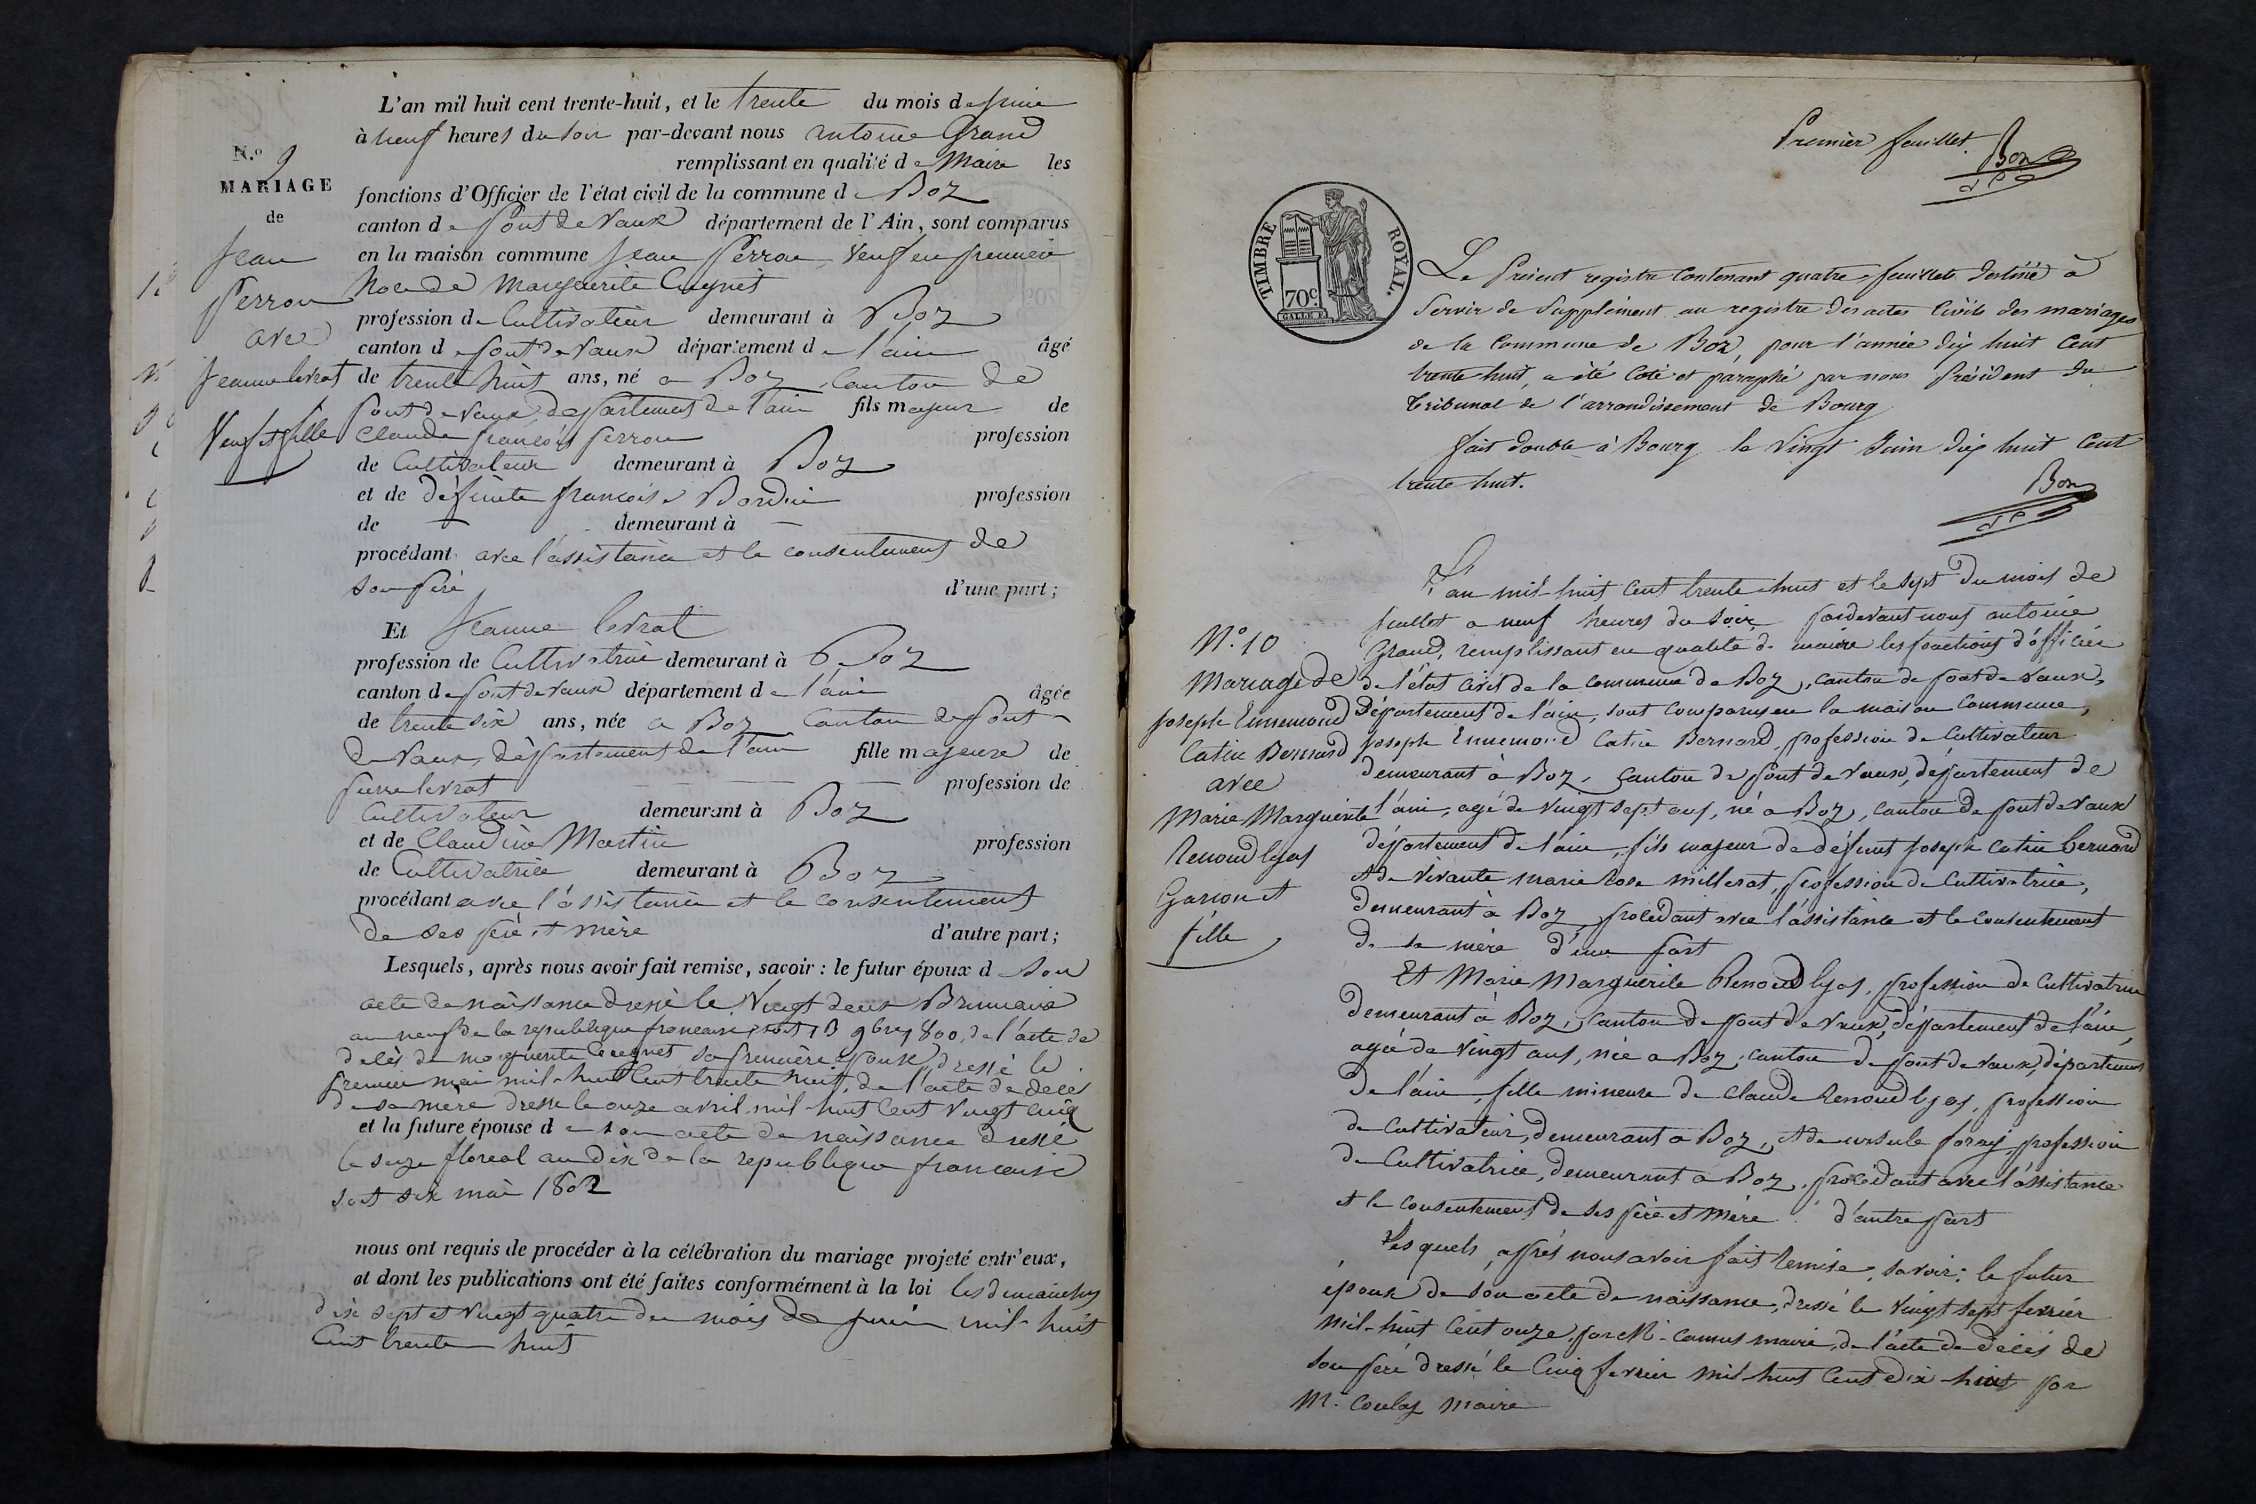 L'an mil huit cent trente-huit, et le trente du mois de juin
à neuf heures du soir par-devant nous antoine Grand
remplissant en qualité de Maire les
fonctions d'Officier de l'état civil de la commune de Boz
canton de pont de Vaux département de l'Ain, sont comparus
en la maison commune Jean Perron, Veuf en premiere
Noce de Marguerite Cugnet
profession de Cultivateur demeurant à Boz
canton de pont de Vaux département de l'ain âgé
de trente huit ans, né a Boz, Canton de
pont de Vaux, departement de l'ain fils majeur de
Claude françois perron profession
de Cultivateur demeurant à Boz
et de défunte francoise Bordin profession
de — demeurant à —
procédant avec l'assistance et le consentement de
son père d'une part;
Et Jeanne levrat
profession de Cultivatrice demeurant à Boz
canton de pont de Vaux département de l'ain âgée
de trente six ans, née a Boz Canton de pont
de Vaux, département de l'ain fille majeure de
pierre levrat profession de
Cultivateur demeurant à Boz
et de Claudine Martin profession
de Cultivatrice demeurant à Boz
procédant avec l'assistance et le consentement
de ses père et mère d'autre part;
Lesquels, après nous avoir fait remise, savoir: le futur époux de son
acte de naissance dressé le Vingt deux Brumaire
an neuf de la republique francaise, soit 13 9bre 1800, de l'acte de
décès de marguerite Cugnet sa première épouse, dressé le
premier mai mil-huit Cent trente huit, de l'acte de décès
de sa mère dressé le onze avril mil-huit Cent Vingt cinq
et la future épouse de son acte de naissance dressé
le seize floreal an dix de la republique francaise
soit six mai 1802
nous ont requis de procéder à la célébration du mariage projeté entr'eux,
et dont les publications ont été faites conformément à la loi les dimanches
dix sept et vingt quatre du mois de juin mil-huit
Cent trente huit
N.º 9
MARIAGE
de
Jean
Perron
avec
Jeanne levrat
Veuf et fille
Premier feuillet.
Bon
TIMBRE ROYAL.
70c.
Le Présent registre Contenant quatre feuillets destiné à
Servir de Supplément au registre des actes Civils des mariages
de la Commune de Boz, pour l'année dix huit Cent
trente huit, a été Coté et paraphé par nous Président du
Tribunal de l'arrondissement de Bourg
fait double à Bourg le Vingt Juin dix huit Cent
trente huit.
Bon
L'an mil-huit Cent trente-huit et le sept du mois de
juillet a neuf heures du soir, pardevant nous antoine
Grand, remplissant en qualité de maire les fonctions d'officier
de l'état civil de la commune de Boz, canton de pont de vaux,
Département de l'ain, sont comparus en la maison Commune,
Joseph Ennemond Catin Bernard, profession de Cultivateur
demeurant à Boz, Canton de pont de vaux, département de
l'ain, agé de vingt sept ans, né a Boz, canton de pont de vaux
département de l'ain, fils majeur de défunt joseph Catin bernard
et de vivante marie rose millerat, profession de Cultivatrice,
demeurant à Boz, procédant avec l'assistance et le consentement
de sa mère d'une part
Et Marie Marguerite Renoud lyas, profession de Cultivatrice
demeurant à Boz, Canton de pont de Vaux, département de l'ain,
agée de vingt ans, née a Boz, canton de pont de vaux, département
de l'ain, fille mineure de claude renoud lyas, profession
de Cultivateur, demeurant a Boz, et de ursule foray, profession
de Cultivatrice, demeurant a Boz, procédant avec l'assistance
et le consentement de ses père et mère d'autre part
Les quels, après nous avoir fait remise, savoir: le futur
époux de son acte de naissance, dressé le vingt sept fevrier
mil-huit Cent onze, par Mr. Camus maire, de l'acte de décès de
son père dressé le Cinq fevrier mil-huit Cent dix huit par
Mr. Coulas Maire
Nº. 10
Mariage de
Joseph Ennemond
Catin Bernard
avec
Marie Marguerite
Renoud lyas
Garçon et
fille